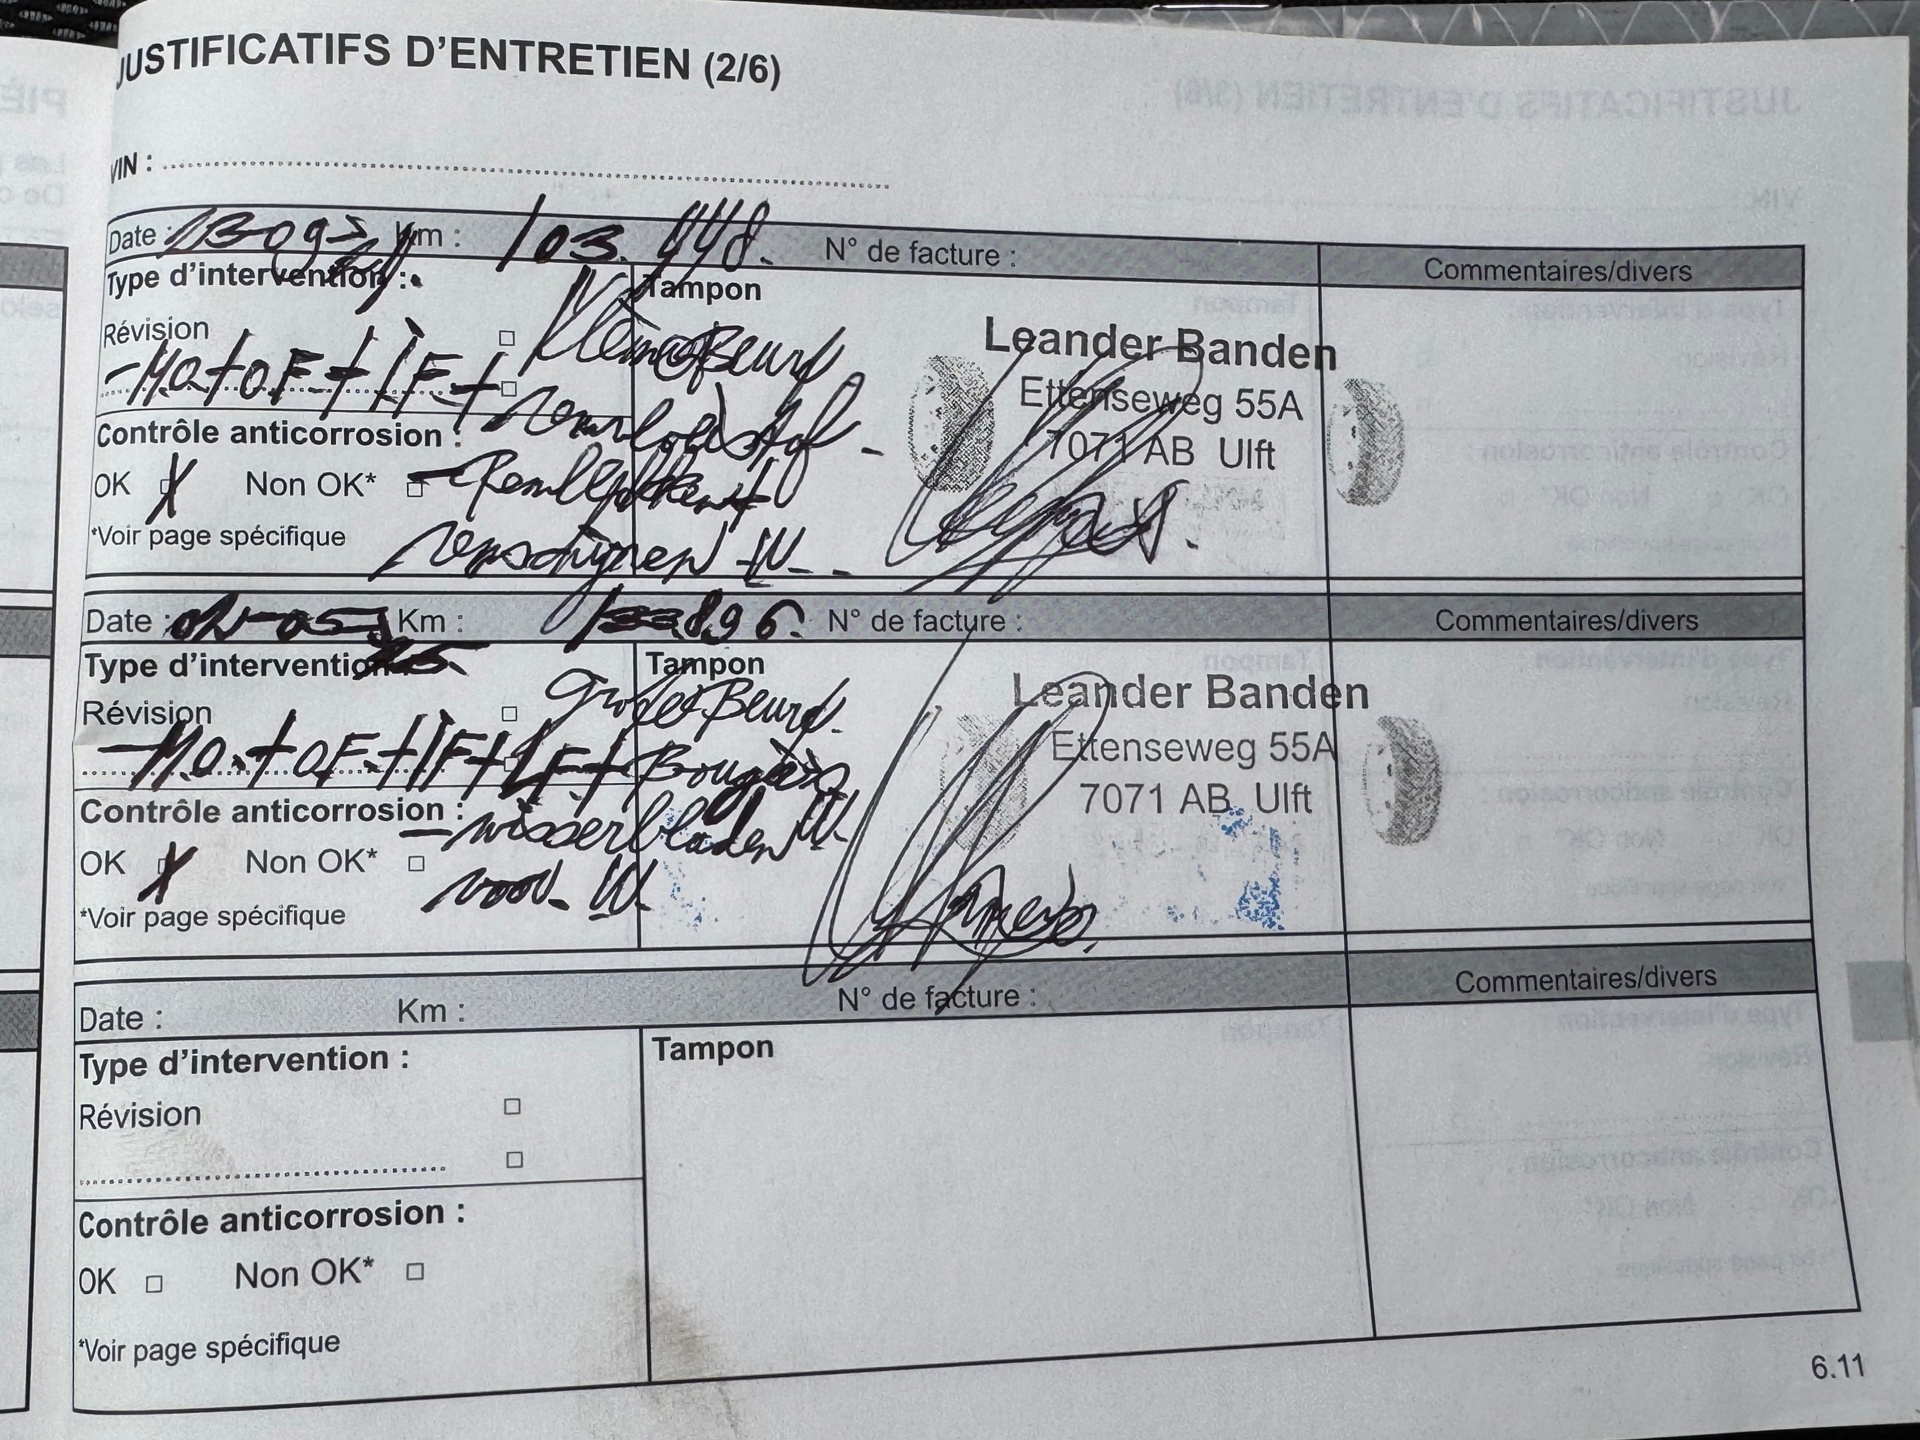 JUSTIFICATIFS D'ENTRETIEN (2/6)
VIN :
Date : Km : 103.448. N° de facture : Commentaires/divers
Type d'intervention : Tampon
Révision
Kleine Beurt
- M.O. + O.F. + I.F. +
remvloeistof -
Contrôle anticorrosion :
OK Non OK* - Remblokken +
*Voir page spécifique
remschijven
Leander Banden
Ettenseweg 55A
7071 AB Ulft
Date : 02-05- Km : 896. N° de facture : Commentaires/divers
Type d'intervention Tampon
Révision
Grote Beurt.
- M.O. + O.F. + I.F. + L.F. + Bougies
Contrôle anticorrosion :
- wisserbladen
OK Non OK*
voor
*Voir page spécifique
Leander Banden
Ettenseweg 55A
7071 AB Ulft
Date : Km : N° de facture : Commentaires/divers
Type d'intervention : Tampon
Révision
Contrôle anticorrosion :
OK Non OK*
*Voir page spécifique
6.11